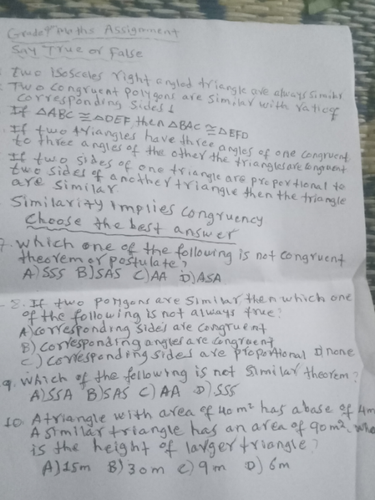 Grade 9th Maths Assignment
Say True or False
Two Isosceles right angled triangle are always similar
Two congruent polygons are similar with ratio of
corresponding sides 1
If ΔABC ≅ ΔDEF then ΔBAC ≅ ΔEFD
If two triangles have three angles of one congruent
to three angles of the other the triangles are congruent
If two sides of one triangle are proportional to
two sides of another triangle then the triangle
are similar
Similarity Implies congruency
Choose the best answer
7. Which one of the following is not congruent
theorem or postulate?
A) SSS B) SAS C) AA D) ASA
8. If two polygons are similar then which one
of the following is not always true?
A) corresponding sides are congruent
B) corresponding angles are congruent
C) corresponding sides are proportional D) none
9. Which of the following is not similar theorem?
A) SSA B) SAS C) AA D) SSS
10. A triangle with area of 40m² has a base of 4m
A similar triangle has an area of 90m².
is the height of larger triangle?
A) 15m B) 30m C) 9m D) 6m